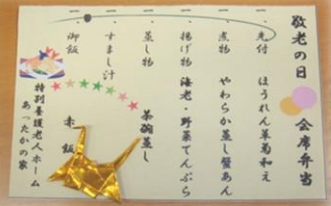 敬老の日 会席弁当
一、先付 ほうれん草菊和え
一、煮物 やわらか蒸し蟹あん
一、揚げ物 海老・野菜てんぷら
一、蒸し物 茶碗蒸し
一、すまし汁
一、御飯 赤飯
特別養護老人ホーム
あったかの家